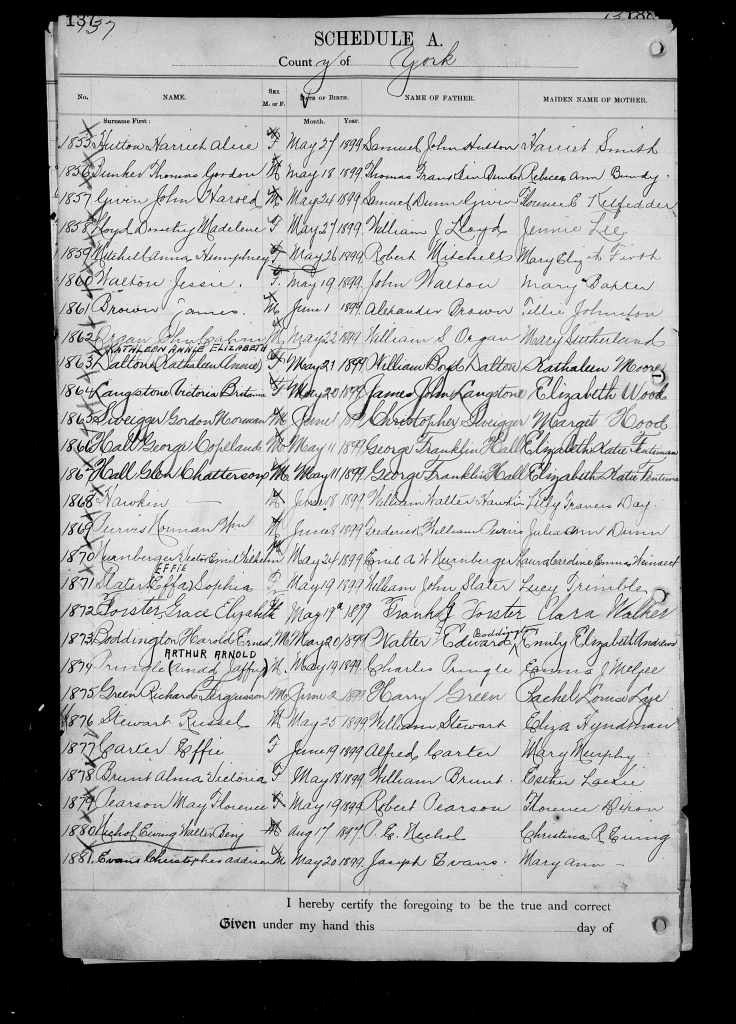 137 137
SCHEDULE A.
County of York
No. NAME. SEX M. or F. DATE OF BIRTH. NAME OF FATHER. MAIDEN NAME OF MOTHER.
Surname First: Month. Year.
1855 Hutton Harriet Alice F May 27 1899 Samuel John Hutton Harriet Smith
1856 Bunker Thomas Gordon M May 18 1899 Thomas Bunker Rebecca Ann Bundy
1857 Givin John Harold M May 24 1899 Samuel Dunn Givin Florence E Kilfedder
1858 Lloyd Dorothy Madeline F May 27 1899 William J Lloyd Jennie Lee
1859 Mitchell Anna Humphrey F May 26 1899 Robert Mitchell Mary Elizth Firth
1860 Walton Jessie. F. May 19 1899 John Walton Mary Baxter
1861 Brown James. M June 1 1899 Alexander Brown Tillie Johnston
1862 Organ M May 22 1899 William S. Organ Mary Sutherland
KATHLEEN ANNIE ELIZABETH
1863 Dalton (Kathaleen Annie) F May 21 1899 William Boyd Dalton Kathaleen Moore
1864 Langstone Victoria Britania F May 20 1899 James John Langstone Elizabeth Wood
1865 Sweigger Gordon Norman M June 1 1899 Christopher Sweigger Marget Hood
1866 Hall George Copeland M May 11 1899 George Franklin Hall Elizabeth Katie Fenteman
1867 Hall Glen Chatterson M May 11 1899 George Franklin Hall Elizabeth Katie Fenteman
1868 Hawkin — M June 8 1899 William Walter Hawkin Lilly Travers Day.
1869 Purvis Norman Wm M June 8 1899 Frederick William Purvis Julia Ann Dunn
1870 Nurnberger Victor Emil Wilhelm M May 24 1899 Emil A W Nurnberger Laura Caroline Emma
EFFIE
1871 Slater (Effa) Sophia F May 19 1899 William John Slater Lucy Trimble
1872 Forster, Grace Elizabeth May 19" 1899 Frank G Forster Clara Walker
1873 Boddington Harold Ernest M May 20 1899 Walter Edward Boddington Emily Elizabeth Andrews
ARTHUR ARNOLD
1874 Pringle M. May 19 1899 Charles Pringle Emma J McGee
1875 Green Richard Fergusson M June 2 1899 Harry Green Rachel Louisa Lye
1876 Stewart Russel M May 25 1899 William Stewart Eliza Hyndman
1877 Carter Effie F June 19 1899 Alfred Carter Mary Murphy
1878 Brunt Alma Victoria F May 18 1899 William Brunt. Esther
1879 Pearson May Florence F May 19 1899 Robert Pearson Florence Dixon
1880 Nichol Ewing Walter Benj M Aug 17 1897 P. E. Nichol Christina R Ewing
1881. Evans Christopher Addison M May 20 1899 Joseph Evans. Mary Ann —
I hereby certify the foregoing to be the true and correct
Given under my hand this day of